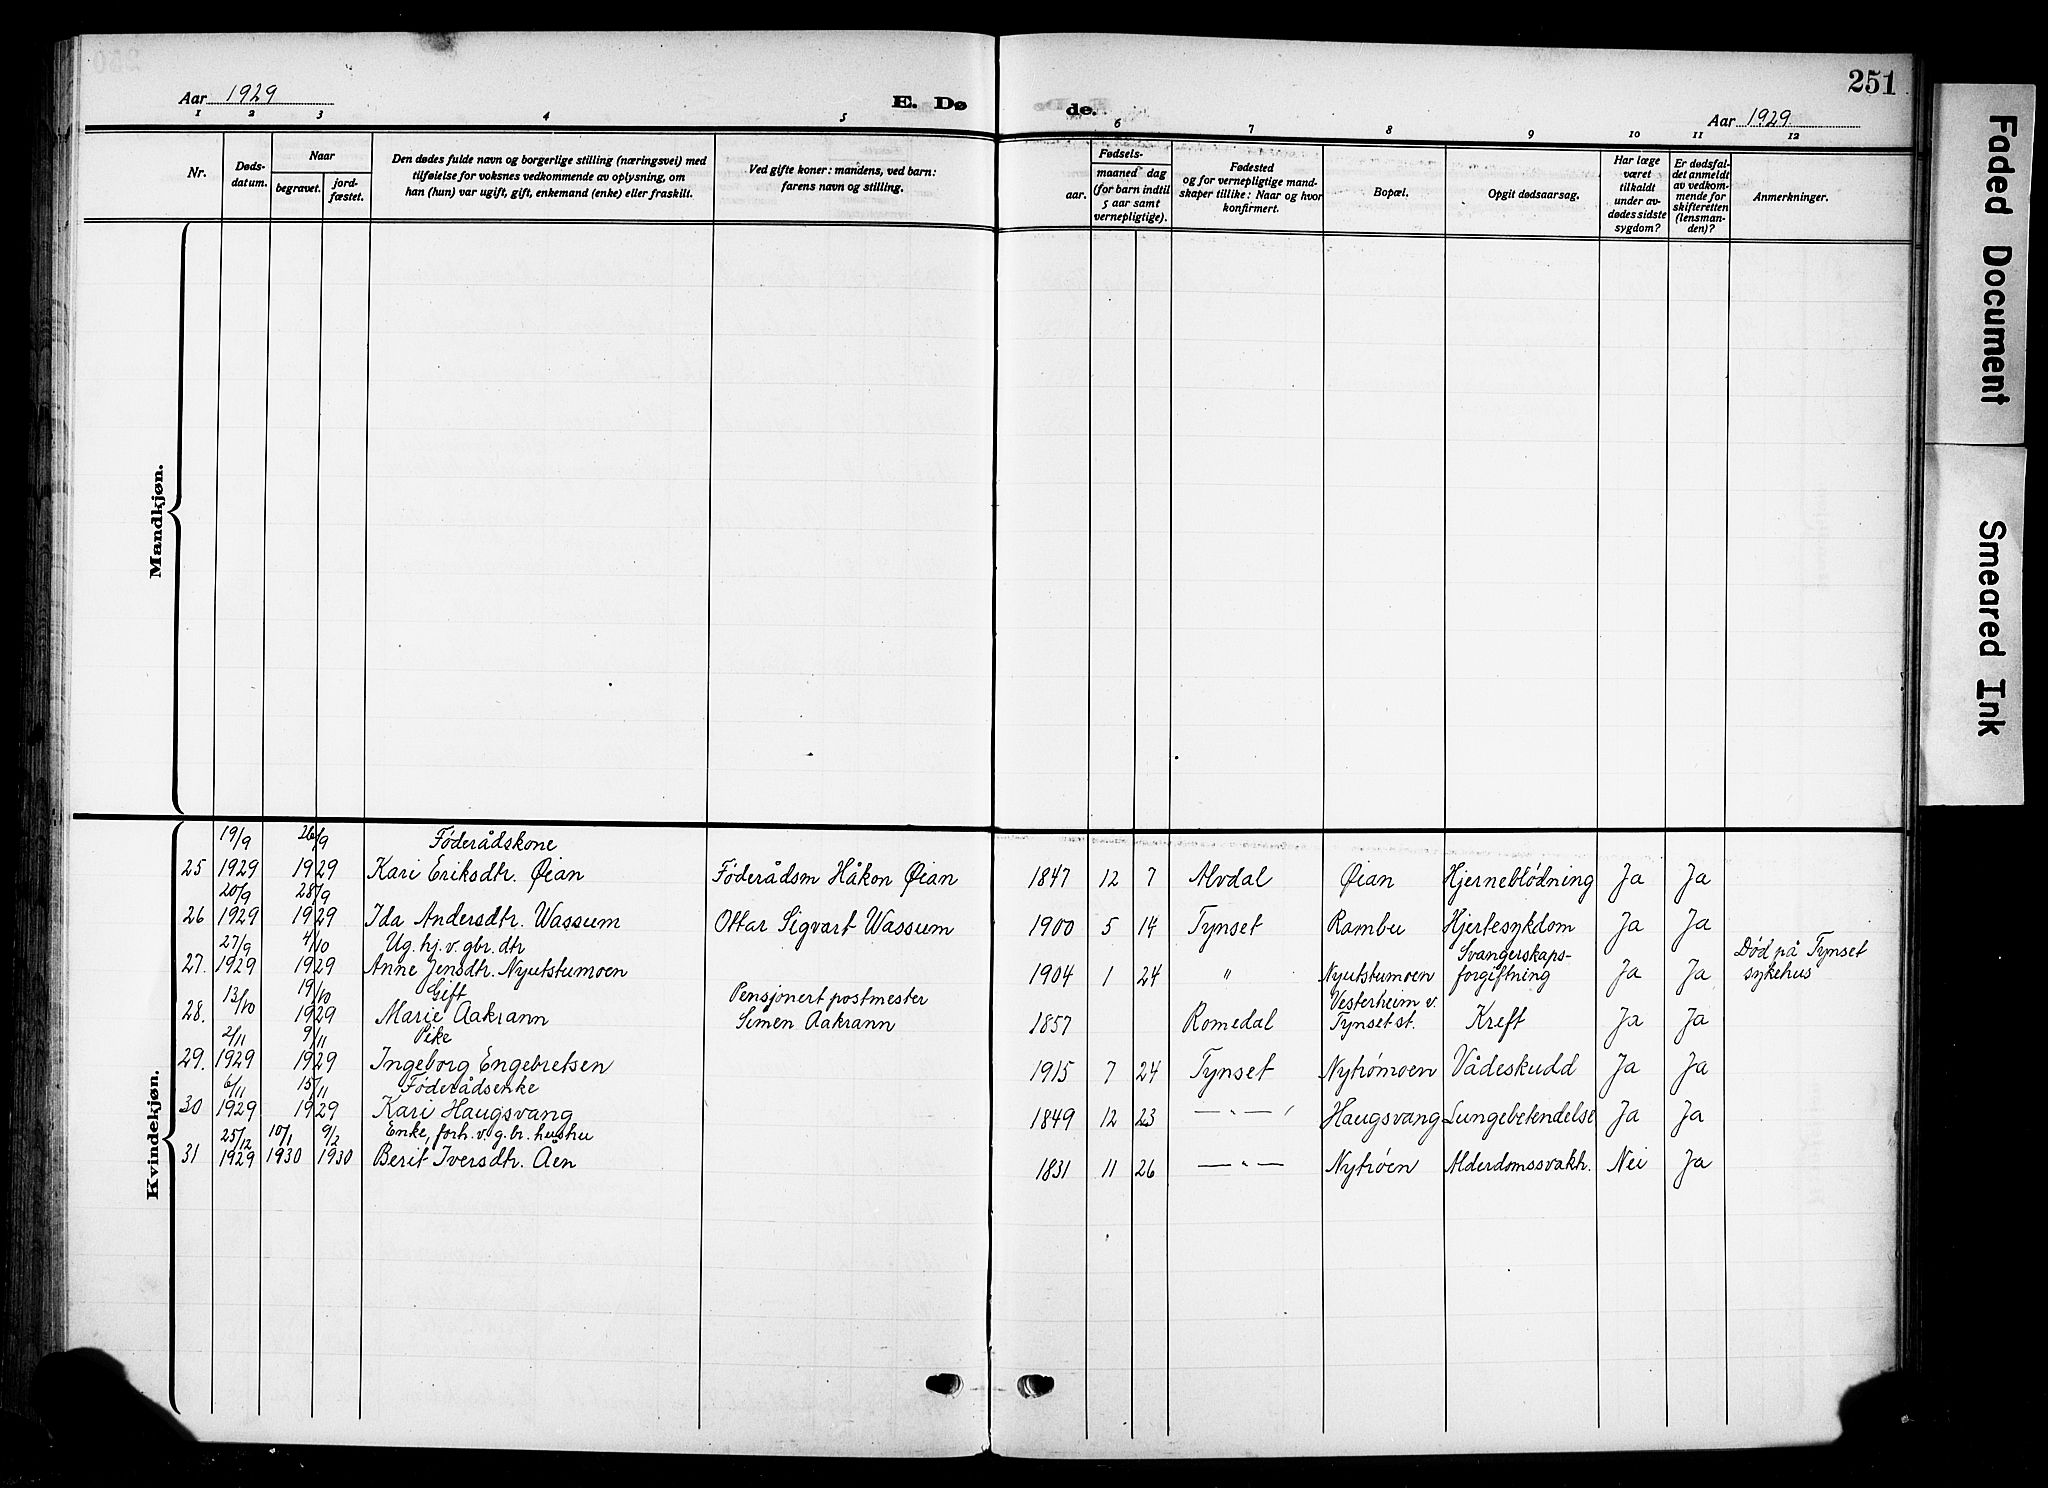 251
Aar 1929
E. Dø
de.
Aar 1929.
1 2 3 4 5 6 7 8 9 10 11 12
Nr.
Døds-
datum.
Naar
begravet.
jord-
fæstet.
Den dødes fulde navn og borgerlige stilling (næringsvei) med
tilføielse for voksnes vedkommende av oplysning, om
han (hun) var ugift, gift, enkemand (enke) eller fraskilt.
Ved gifte koner: mandens, ved barn:
farens navn og stilling.
Fødsels-
aar.
maaned dag
(for barn indtil
5 aar samt
vernepligtige).
Fødested
og for vernepligtige mand-
skaper tillike: Naar og hvor
konfirmert.
Bopæl.
Opgit dødsaarsag.
Har læge
været
tilkaldt
under av-
dødes sidste
sygdom?
Er dødsfal-
det anmeldt
av vedkom-
mende for
skifteretten
(lensman-
den)?
Anmerkninger.
Mandkjøn.
Kvindekjøn.
19/9 26/9 Føderådskone
25 1929 1929 Kari Eriksdtr. Øian Føderådsm Håkon Øian 1847 12 7 Alvdal Øian Hjerneblødning Ja Ja
20/9 28/9
26 1929 1929 Ida Andersdtr. Wassum Ottar Sigvart Wassum 1900 5 14 Tynset Rambu Hjertesykdom Ja Ja
27/9 4/10 Ug. hj. v. gbr. dtr Svangerskaps- Død på Tynset
27. 1929 1929 Anne Jensdtr. Nyutstumoen 1904 1 24 " Nyutstumoen forgiftning Ja Ja sykehus
13/10 19/10 Gift Pensjonert postmester Vesterheim v.
28. 1929 Marie Aakrann Simen Aakrann 1857 Romedal Tynset st. Kreft Ja Ja
2/11 9/11 Pike
29. 1929 1929 Ingeborg Engebretsen 1915 7 24 Tynset Nytrømoen Vådeskudd Ja Ja
6/11 15/11 Føderådsenke
30 1929 1929 Kari Haugsvang 1849 12 23 — " — Haugsvang Lungebetendelse Ja Ja
25/12 10/1 9/2 Enke, forh. v. g. br. hushu
31 1929 1930 1930 Berit Iversdtr. Åen 1831 11 26 — " — Nytrøen Alderdomssvakh. Nei Ja
Faded Document
Smeared Ink